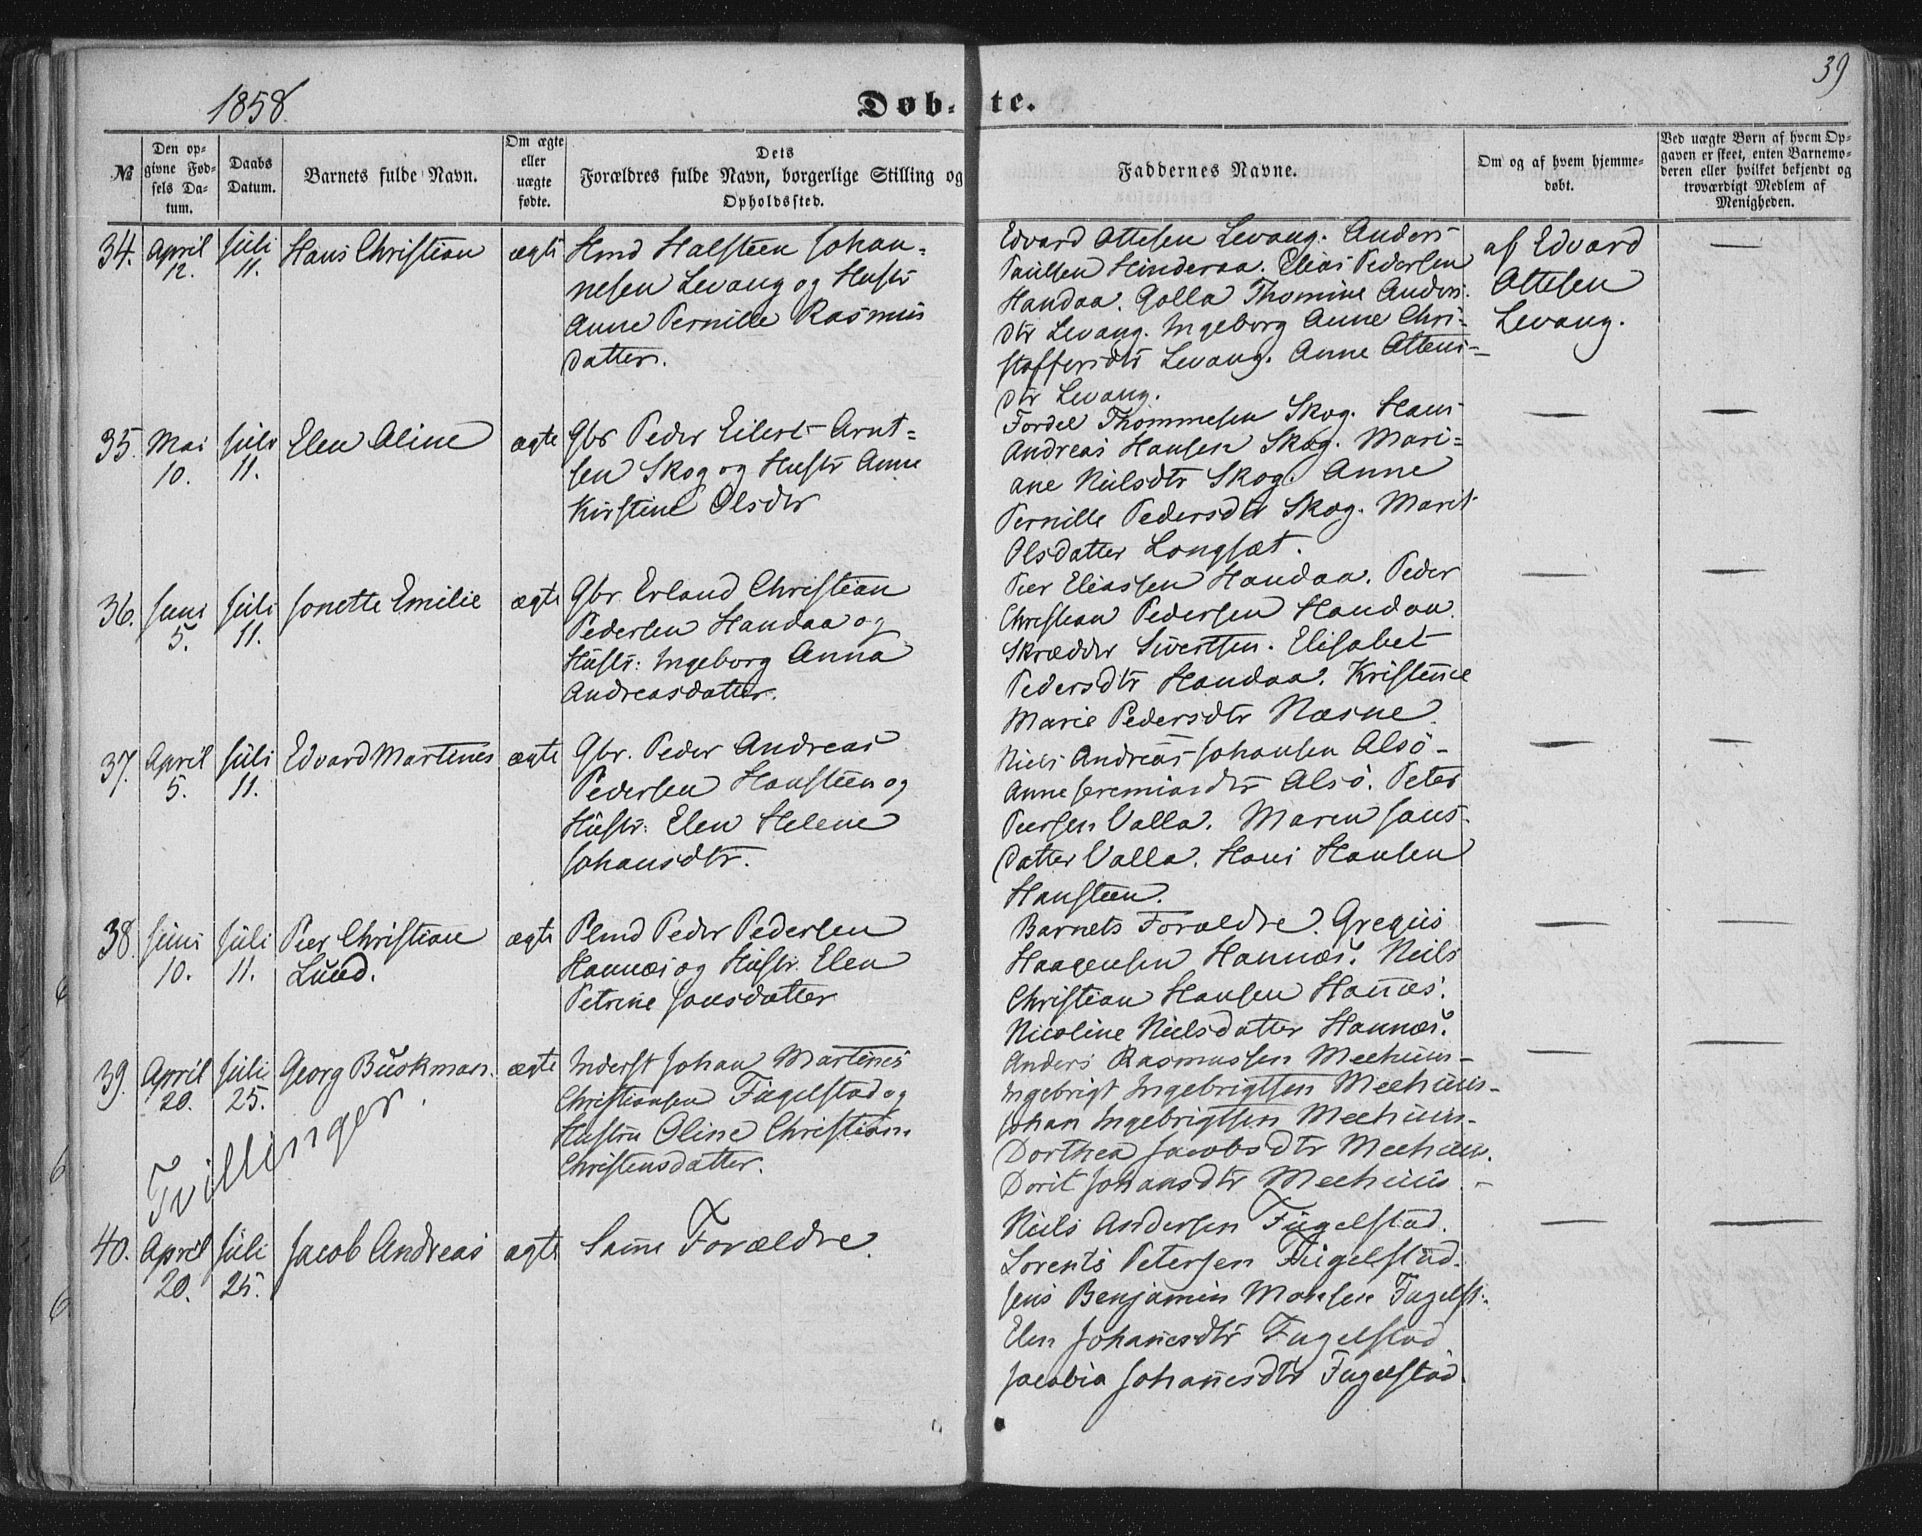 1858.
Døbte.
39
№
Den opgivne Fødsels Datum.
Daabs Datum.
Barnets fulde Navn.
Om ægte eller uægte fødte.
Dets Forældres fulde Navn, borgerlige Stilling og Opholdssted.
Faddernes Navne.
Om og af hvem hjemmedøbt.
Ved uægte Børn af hvem Opgaven er skeet, enten Barnemoderen eller hvilket bekjendt og troværdigt Medlem af Menigheden.
34. April 12. Juli 11. Hans Christian ægte
Hmd Halsteen Johan=
nesen Levang og Hustr
Anne Pernille Rasmus
datter.
Edvard Ottesen Levang. Anders
Paulsen Hinderaa. Elias Pedersen
Handaa. Golla Thomine Anders
dtr Levang. Ingeborg Anne Chri=
stoffersdtr Levang. Anne Ottens=
dtr Levang.
af Edvard
Ottesen
Levang.
—
35. Mai 10. Juli 11. Elen Aline ægte
Gbr Peder Eilert Arnt=
sen Skog og Hustr Anne
Kirstine Olsdtr
Fordel Thommesen Skog. Hans
Andreas Hansen Skog. Mari=
ane Nielsdtr Skog. Anne
Pernille Pedersdtr Skog. Marit
Olsdatter Langsæt.
— —
36. Juni 5. Juli 11. Jonette Emilie ægte
Gbr. Erland Christian
Pedersen Handaa og
Hustr: Ingeborg Anna
Andreasdatter.
Peer Eliassen Handaa. Peder
Christian Pedersen Handaa.
Skrædder Sivertsen. Elisabet
Pedersdtr Handaa. Kristence
Marie Pedersdtr Næsne.
— —
37. April 5. Juli 11. Edvard Martines ægte
Gbr. Peder Andreas
Pedersen Hansteen og
Hustr: Elen Helene
Johansdtr.
Niels Andreas Johansen Alsö-
Anne Jeremiasdtr Alsö. Peter
Peersen Valla. Maren Jans-
datter Valla. Hans Hansen
Hansteen.
— —
38. Juni 10. Juli 11. Peer Christian
Lund. ægte
Plmd Peder Pedersen
Hannæs og Hustr. Elen
Petrine Jonsdatter
Barnets Forældre. Gregus
Haagensen Hannæs. Niels
Christian Hansen Hannæs.
Nicoline Nielsdatter Hannæs.
— —
39. April 20. Juli 25. Georg Buskman. ægte
Inderst Johan Martines
Christiansen Fugelstad og
Hustru Oline Christian.
Christensdatter.
Anders Rasmussen Meehuus-
Ingebrigt Ingebrigtsen Meehuus-
Johan Ingebrigtsen Meehuus-
Dorthea Jacobsdtr Meehuus.
Dorit Johansdtr Meehuus.-
— —
Tvillinger.
40. April 20. Juli 25. Jacob Andreas ægte
Same Forældre.
Niels Andersen Fugelstad.
Lorents Petersen Fugelstad.
Jens Benjamin Monsen Fugelst.
Elen Johanesdtr Fugelstad
Jacobia Johanesdtr Fugelstad.
— —